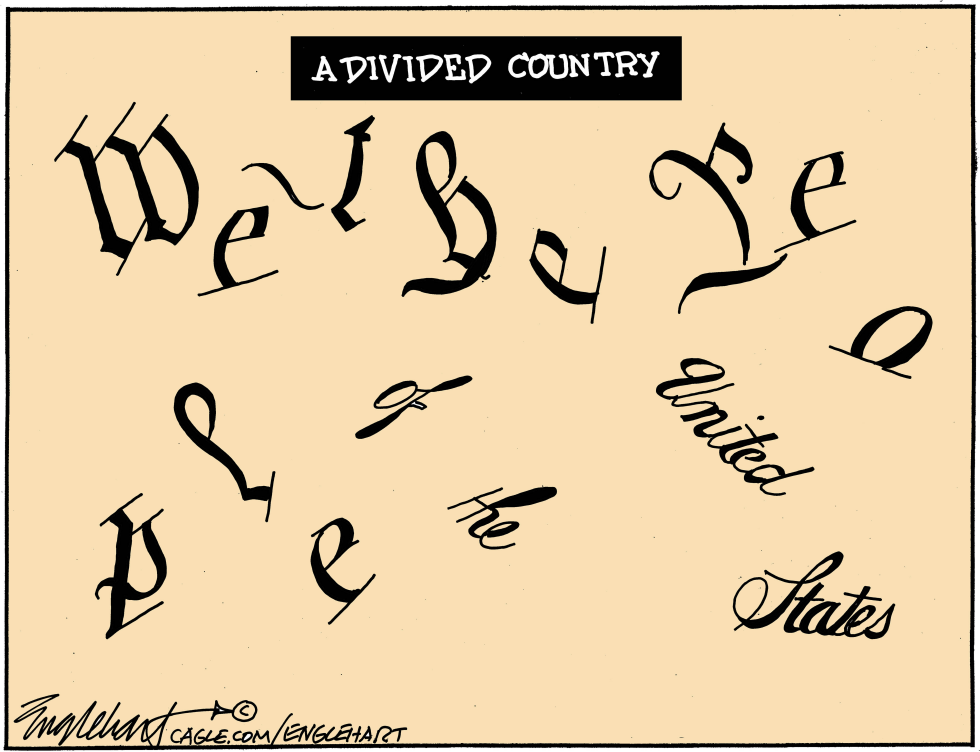 A DIVIDED COUNTRY
We the Pe
o
l of United
p e the
States
Englehart ©
CAGLE.COM/ENGLEHART